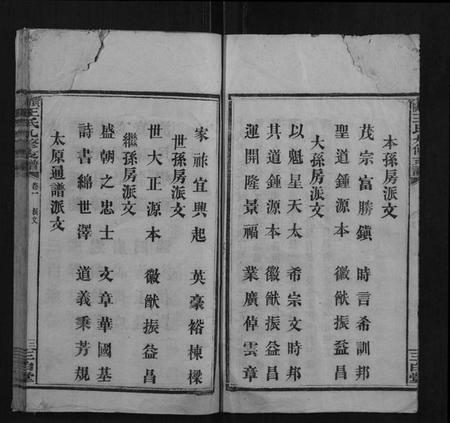 本孫房派文
茂宗富勝鎭 時言希訓邦
聖道鍾源本 徽猷振益昌
大孫房派文
以魁星天太 希宗文時邦
其道鍾源本 徽猷振益昌
運開隆景福 業廣倬雲章
三
三白堂
家祚宜興起 英豪裕棟樑
世孫房派文
世大正源本 徽猷振益昌
繼孫房派文
盛朝之忠士 文章華國基
詩書綿世澤 道義秉芳規
太原通譜派文
王氏九修支譜
卷一 派文
三
三白堂